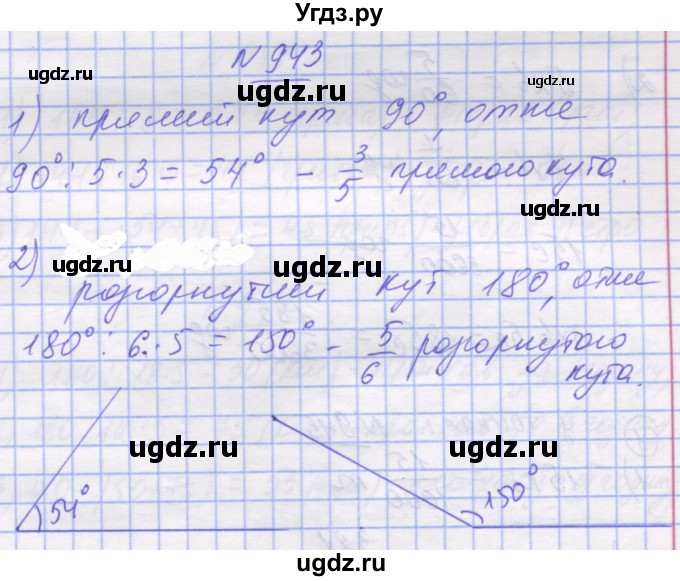 Угдз.ру
N 943
ugdz.ru ugdz.ru ugdz.ru
1) прямий кут 90°, отже
ugdz.ru ugdz.ru
90° : 5 · 3 = 54° – 3/5 прямого кута.
ugdz.ru
2)
ugdz.ru ugdz.ru
розгорнутий кут 180°, отже
180° : 6 · 5 = 150° – 5/6 розгорнутого
ugdz.ru
кута.
ugdz.ru ugdz.ru
54° 150°
ugdz.ru ugdz.ru
ugdz.ru